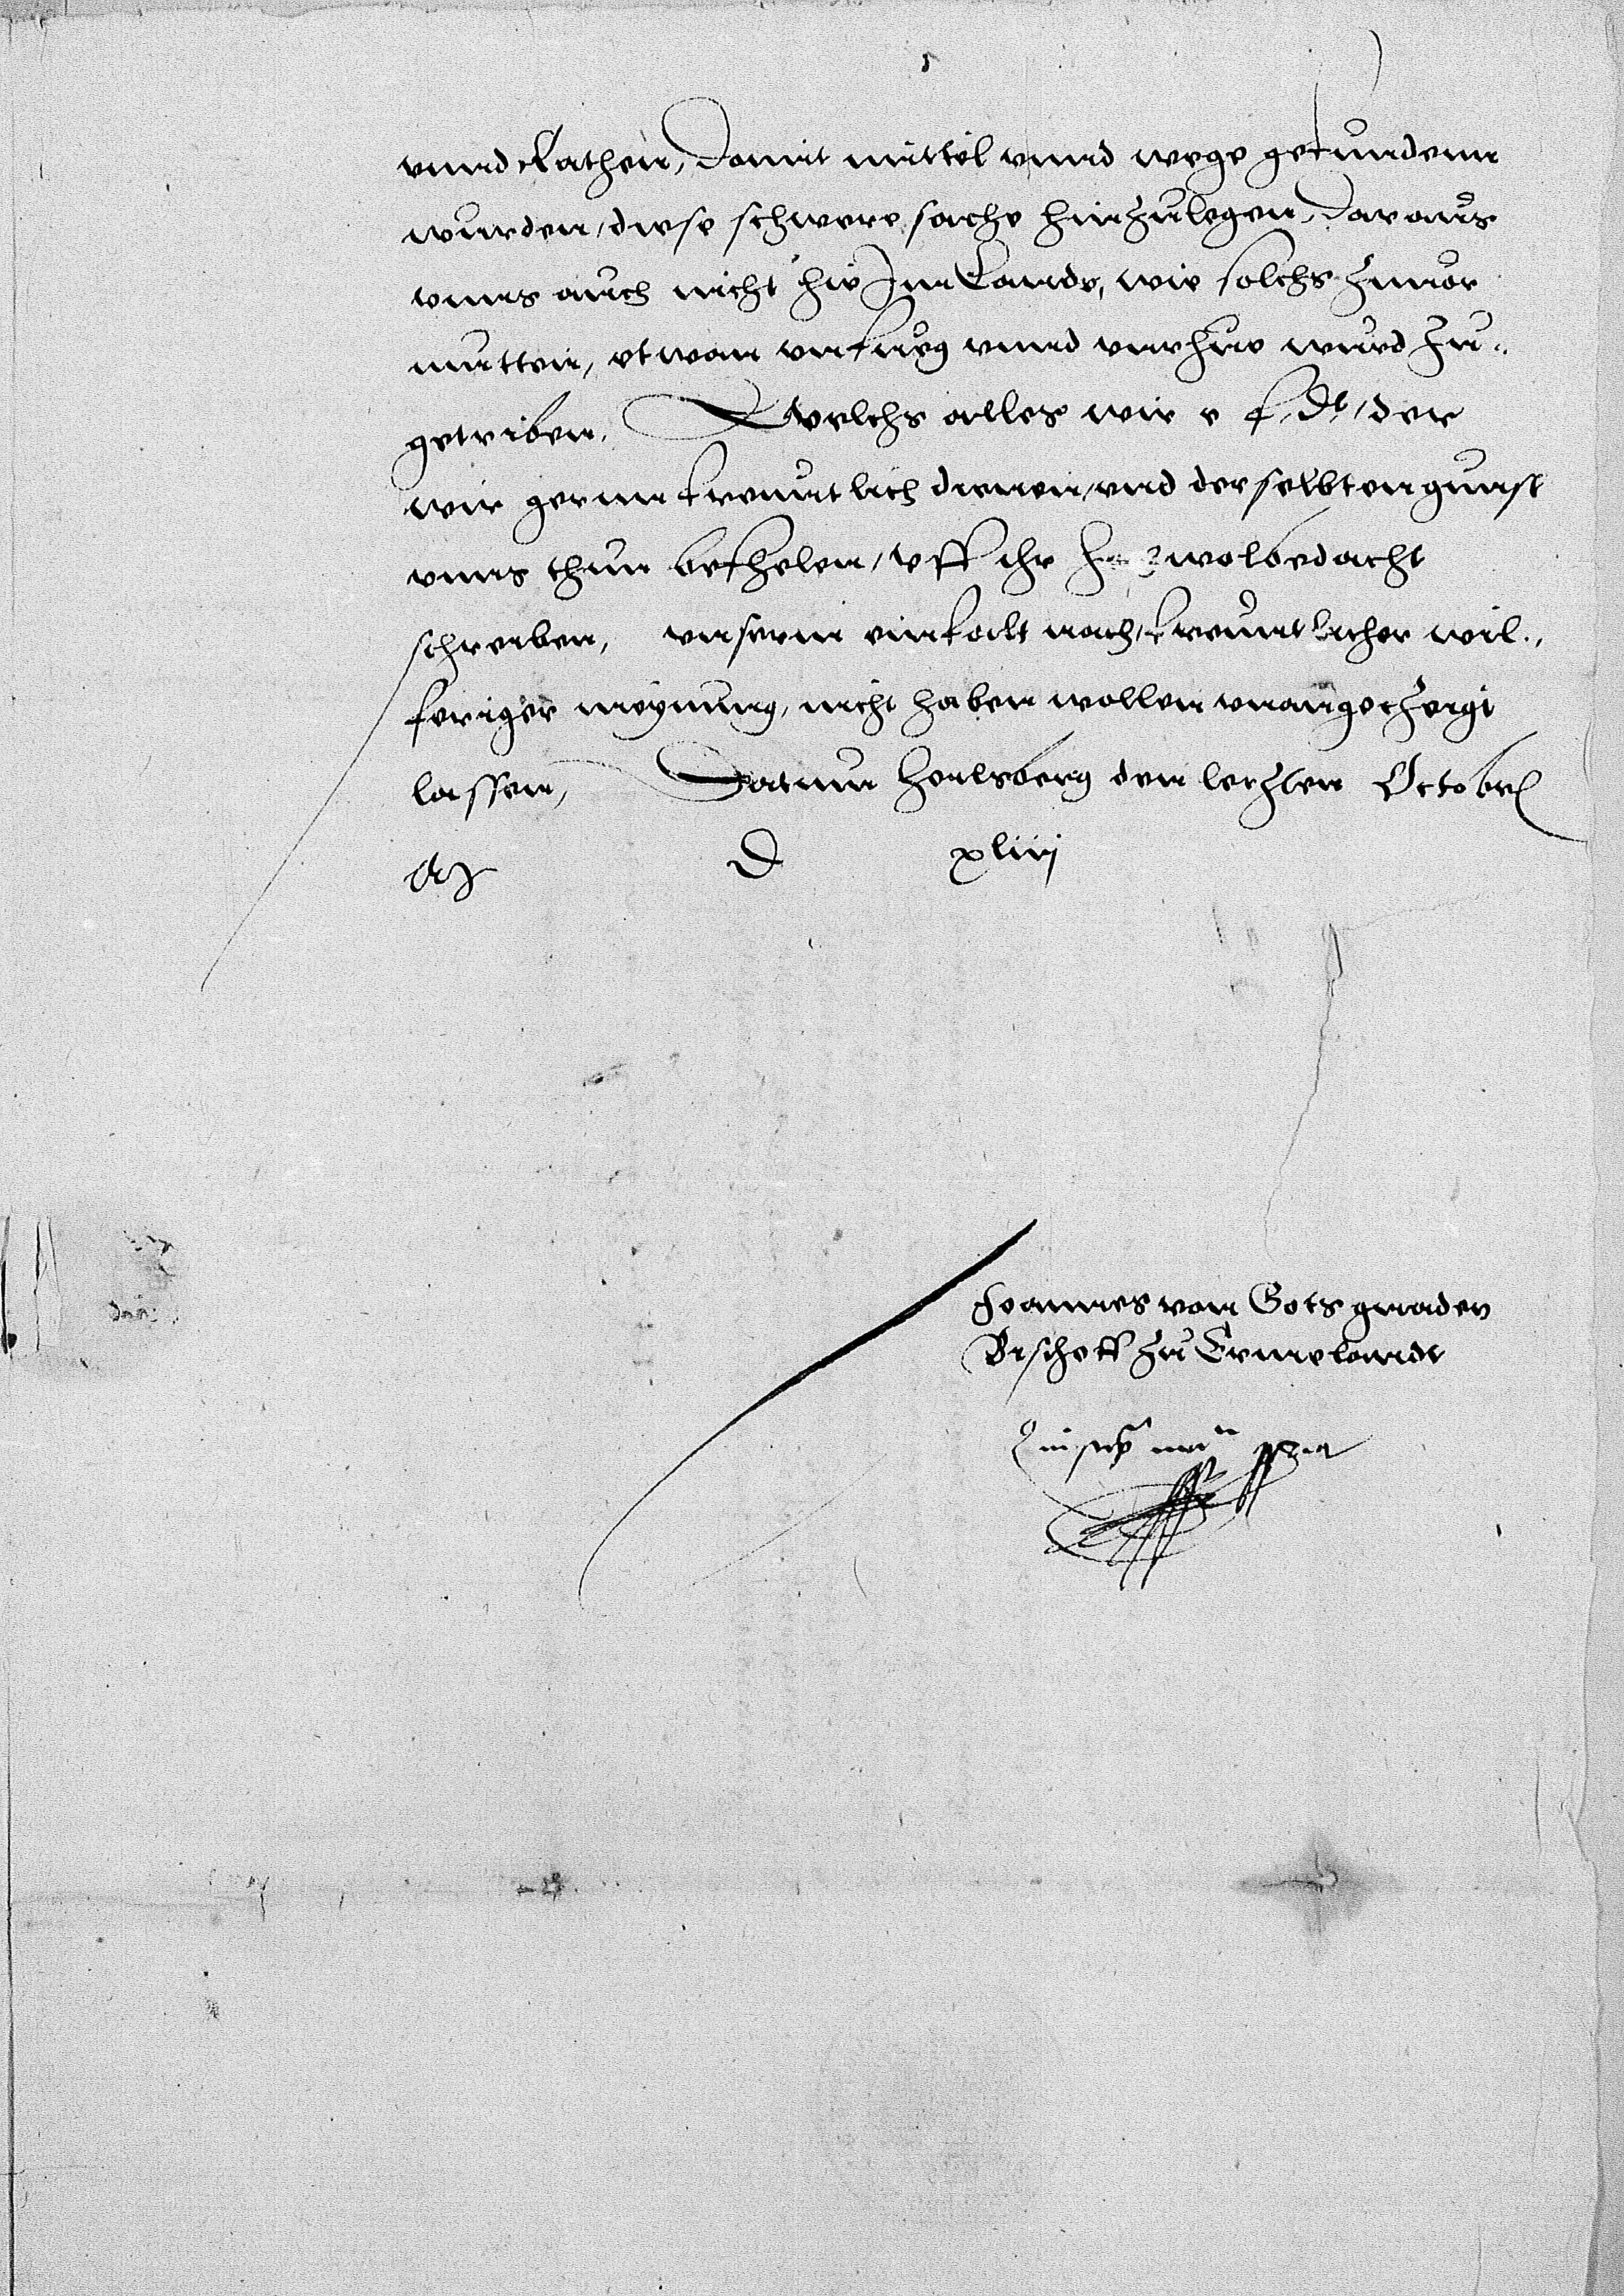 vnnd Rathen, Domit mittel vnnd wege gefundenn
wurden, diese schwere sache hinzulegen, Doraus
vnns auch nicht hie Inn Lande, wie solchs zuuor
mitten, etwan vnfueg vnnd vnrhue wurd zu„
getriben. Welchs alles wir e f Dt, der
wir gernn freuntlich dienen, vnd derselbten gunst
vnns thun befhelen, vff ihr wolbedacht
schreiben, vnserm einfalt nach, freuntlicher wil„
feriger meynung, nicht haben wollen vnangetzeigt
lassen, Datum Heilsberg den letzten Octobris
M D xliiij
Joannes von Gots gnaden
Bischoff zu Ermelandt